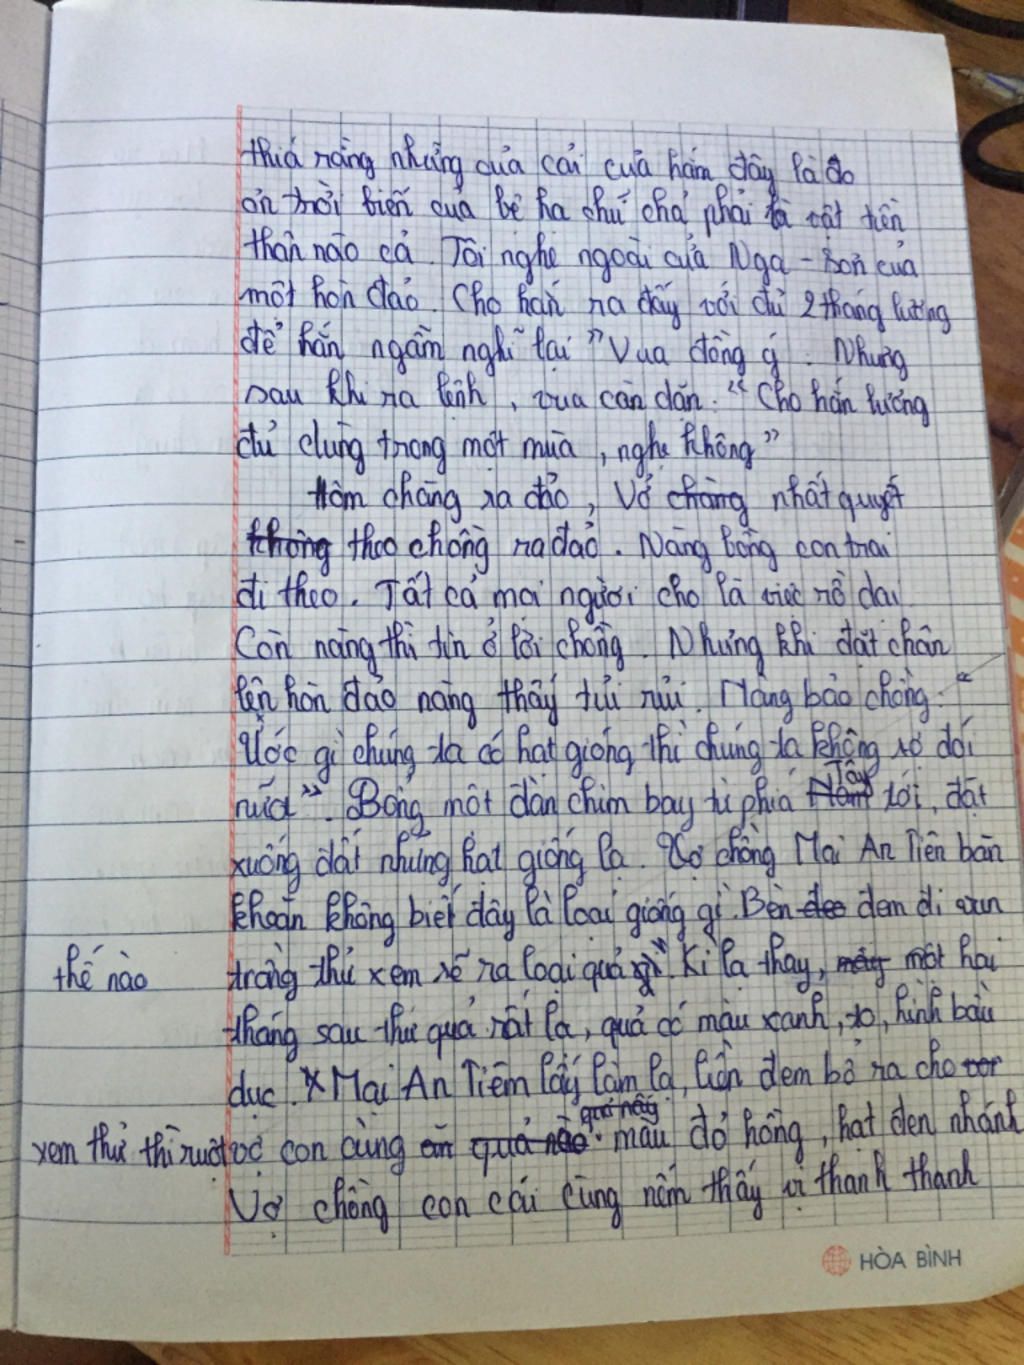 thiá rằng những của cải của hắn đây là do
ơn trời biển của bệ hạ chứ chả phải là vật tiền
thân nào cả. Tôi nghe ngoài cửa Nga - Sơn của
một hòn đảo. Cho hắn ra đấy với đủ 2 tháng lương
để hắn ngẫm nghĩ lại" Vua đồng ý. Nhưng
sau khi ra lệnh, vua căn dặn. "Cho hắn lương
đủ dùng trong một mùa, nghe không"
Hôm chàng ra đảo, Vợ chàng nhất quyết
không theo chồng ra đảo. Nàng bồng con trai
đi theo. Tất cả mọi người cho là việc rồ dại
Còn nàng thì tin ở lời chồng. Nhưng khi đặt chân
lên hòn đảo nàng thấy tủi rủi. Nàng bảo chồng: "
Ước gì chúng ta có hạt giống thì chúng ta không sợ đói
nữa". Bỗng một đàn chim bay từ phía Nam Tây tới, đặt
xuống đất những hạt giống lạ. Vợ chồng Mai An Tiêm băn
khoăn không biết đây là loại giống gì. Bèn đeo đem đi vun
trồng thử xem sẽ ra loại quả gì" thế nào. Kì lạ thay, mấy một hai
tháng sau thứ quả rất lạ, quả có màu xanh, to, hình bầu
dục. X Mai An Tiêm lấy làm lạ, liền đem bổ ra cho vợ
xem thử thì ruột vợ con cùng ăn quả nào quả nấy màu đỏ hồng, hạt đen nhánh
Vợ chồng con cái cùng nếm thấy vị thanh thanh
HÒA BÌNH